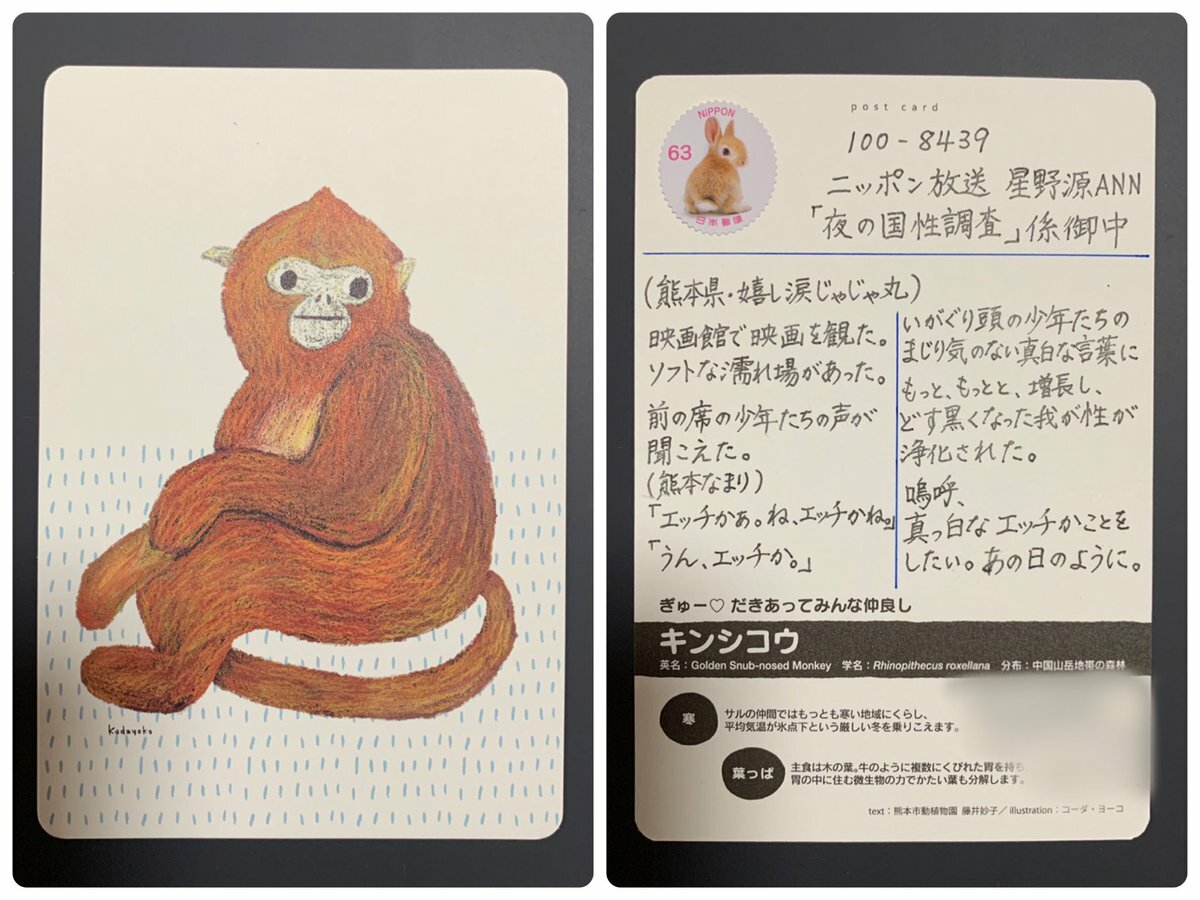 Kodayoko
post card
NIPPON
63
日本郵便
100-8439
ニッポン放送 星野源ANN
「夜の国性調査」係御中
(熊本県・嬉し涙じゃじゃ丸)
映画館で映画を観た。
ソフトな濡れ場があった。
前の席の少年たちの声が
聞こえた。
(熊本なまり)
「エッチかぁ。ね、エッチかね。」
「うん、エッチか。」
いがぐり頭の少年たちの
まじり気のない真白な言葉に
もっと、もっとと、増長し、
どす黒くなった我が性が
浄化された。
嗚呼、
真っ白なエッチかことを
したい。あの日のように。
ぎゅー♡ だきあってみんな仲良し
キンシコウ
英名:Golden Snub-nosed Monkey 学名:Rhinopithecus roxellana 分布:中国山岳地帯の森林
寒
サルの仲間ではもっとも寒い地域にくらし、
平均気温が氷点下という厳しい冬を乗りこえます。
葉っぱ
主食は木の葉。牛のように複数にくびれた胃を持ち、
胃の中に住む微生物の力でかたい葉も分解します。
text:熊本市動植物園 藤井妙子/illustration:コーダ・ヨーコ